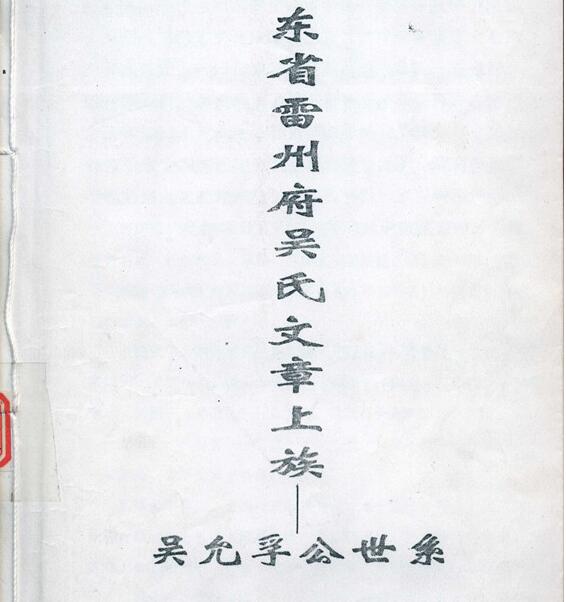 东省雷州府吴氏文章上族—
吴允孚公世系